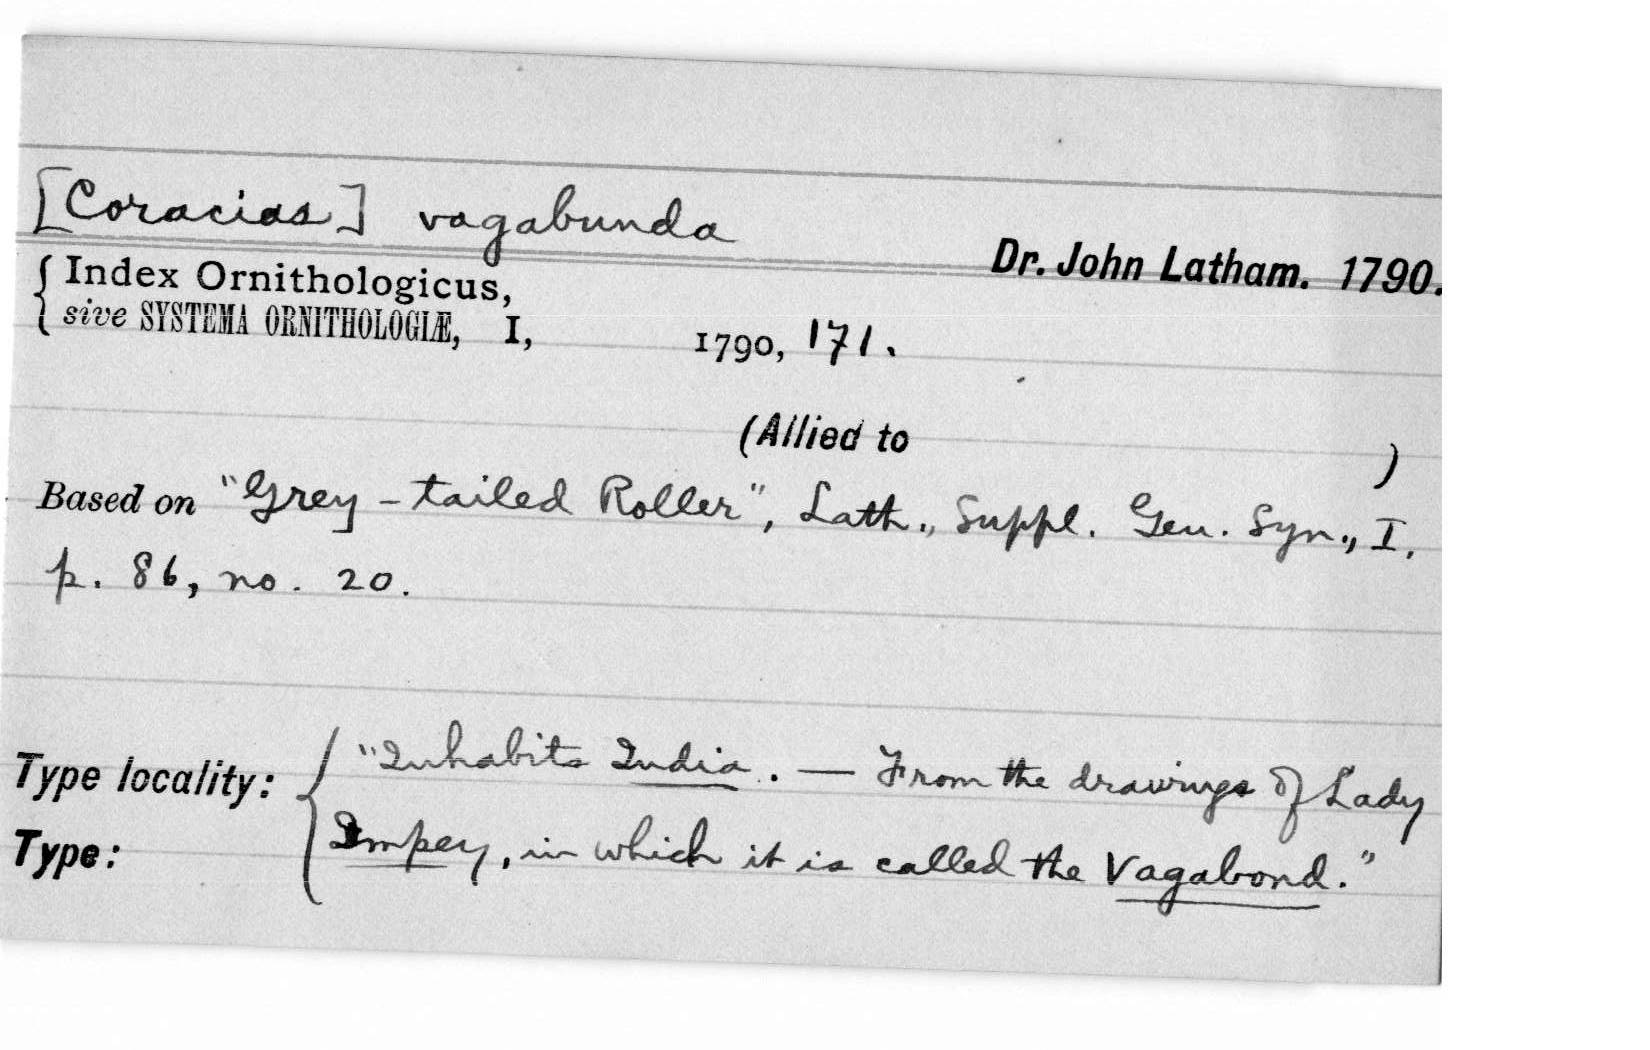 [Coracias] vagabunda
Dr. John Latham. 1790.
Index Ornithologicus,
sive SYSTEMA ORNITHOLOGIÆ, I, 1790, 171.
(Allied to )
Based on "Grey-tailed Roller", Lath., Suppl. Gen. Syn., I.
p. 86, no. 20.
Type locality: "Inhabits India. — From the drawings of Lady
Type: Impey, in which it is called the Vagabond."